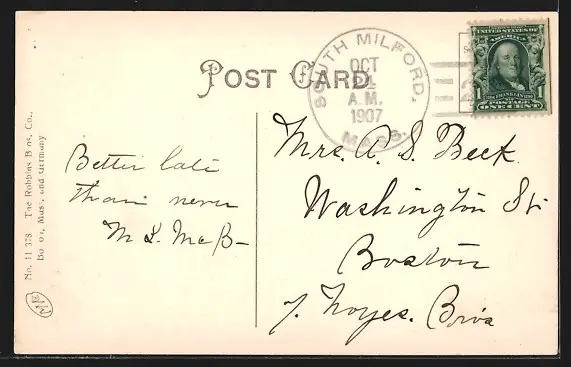 POST CARD
SOUTH MILFORD,
OCT
A.M.
1907
MASS.
UNITED STATES OF
AMERICA
1 FRANKLIN 1
POSTAGE
ONE CENT
Better late
than never
M L. McB-
Mrs. A. S. Beck
Washington St.
Boston
Noyes. Bros
No. 11 378 The Robbins Bros. Co.,
Boston, Mass. and Germany